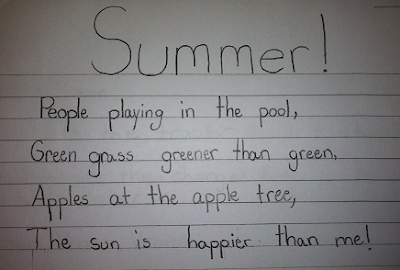 Summer!
People playing in the pool,
Green grass greener than green,
Apples at the apple tree,
The sun is happier than me!